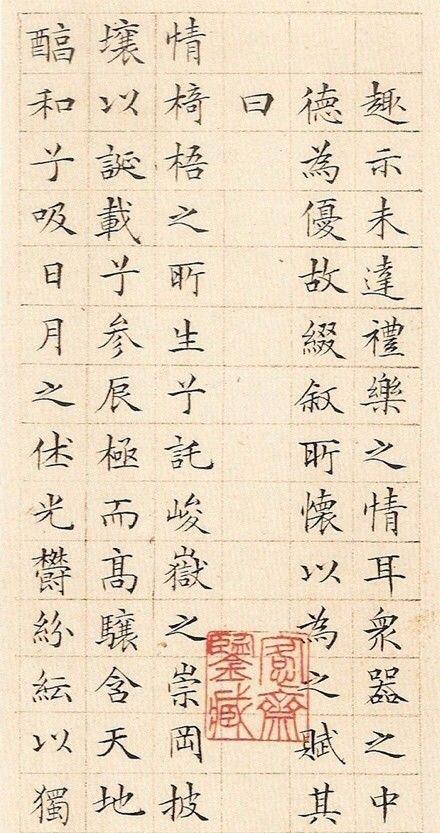 趣示未達禮樂之情耳衆器之中
德為優故綴叙所懷以為之賦其
曰
情椅梧之所生兮託峻嶽之崇岡披
壤以誕載兮参辰極而髙驤含天地
醕和兮吸日月之休光鬱紛紜以獨
齋
鑒藏